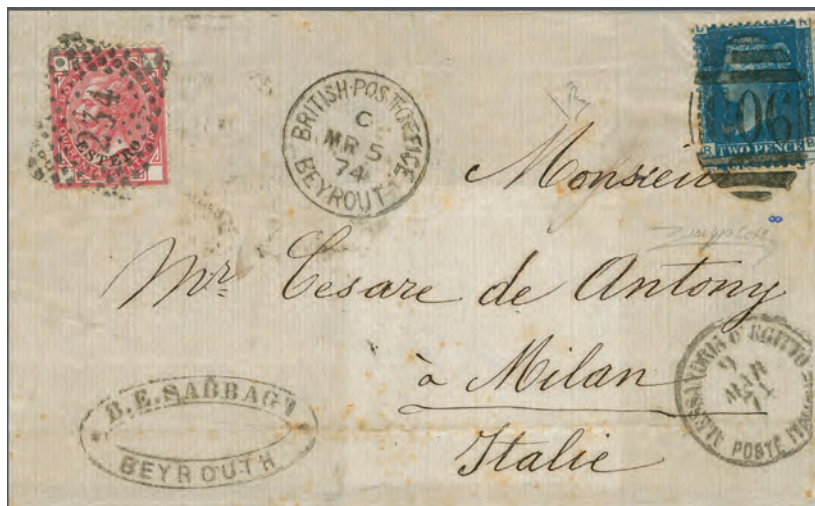 234
ESTERO
BRITISH·POST·OFFICE
C
MR 5
74
BEYROUT
TWO PENCE
Monsieur
Mr Cesare de Antony
à Milan
Italie
B. E. SABBAGH
BEYROUTH
ALESSANDRIA D'EGITTO
9
MAR
74
POSTE ITALIANE